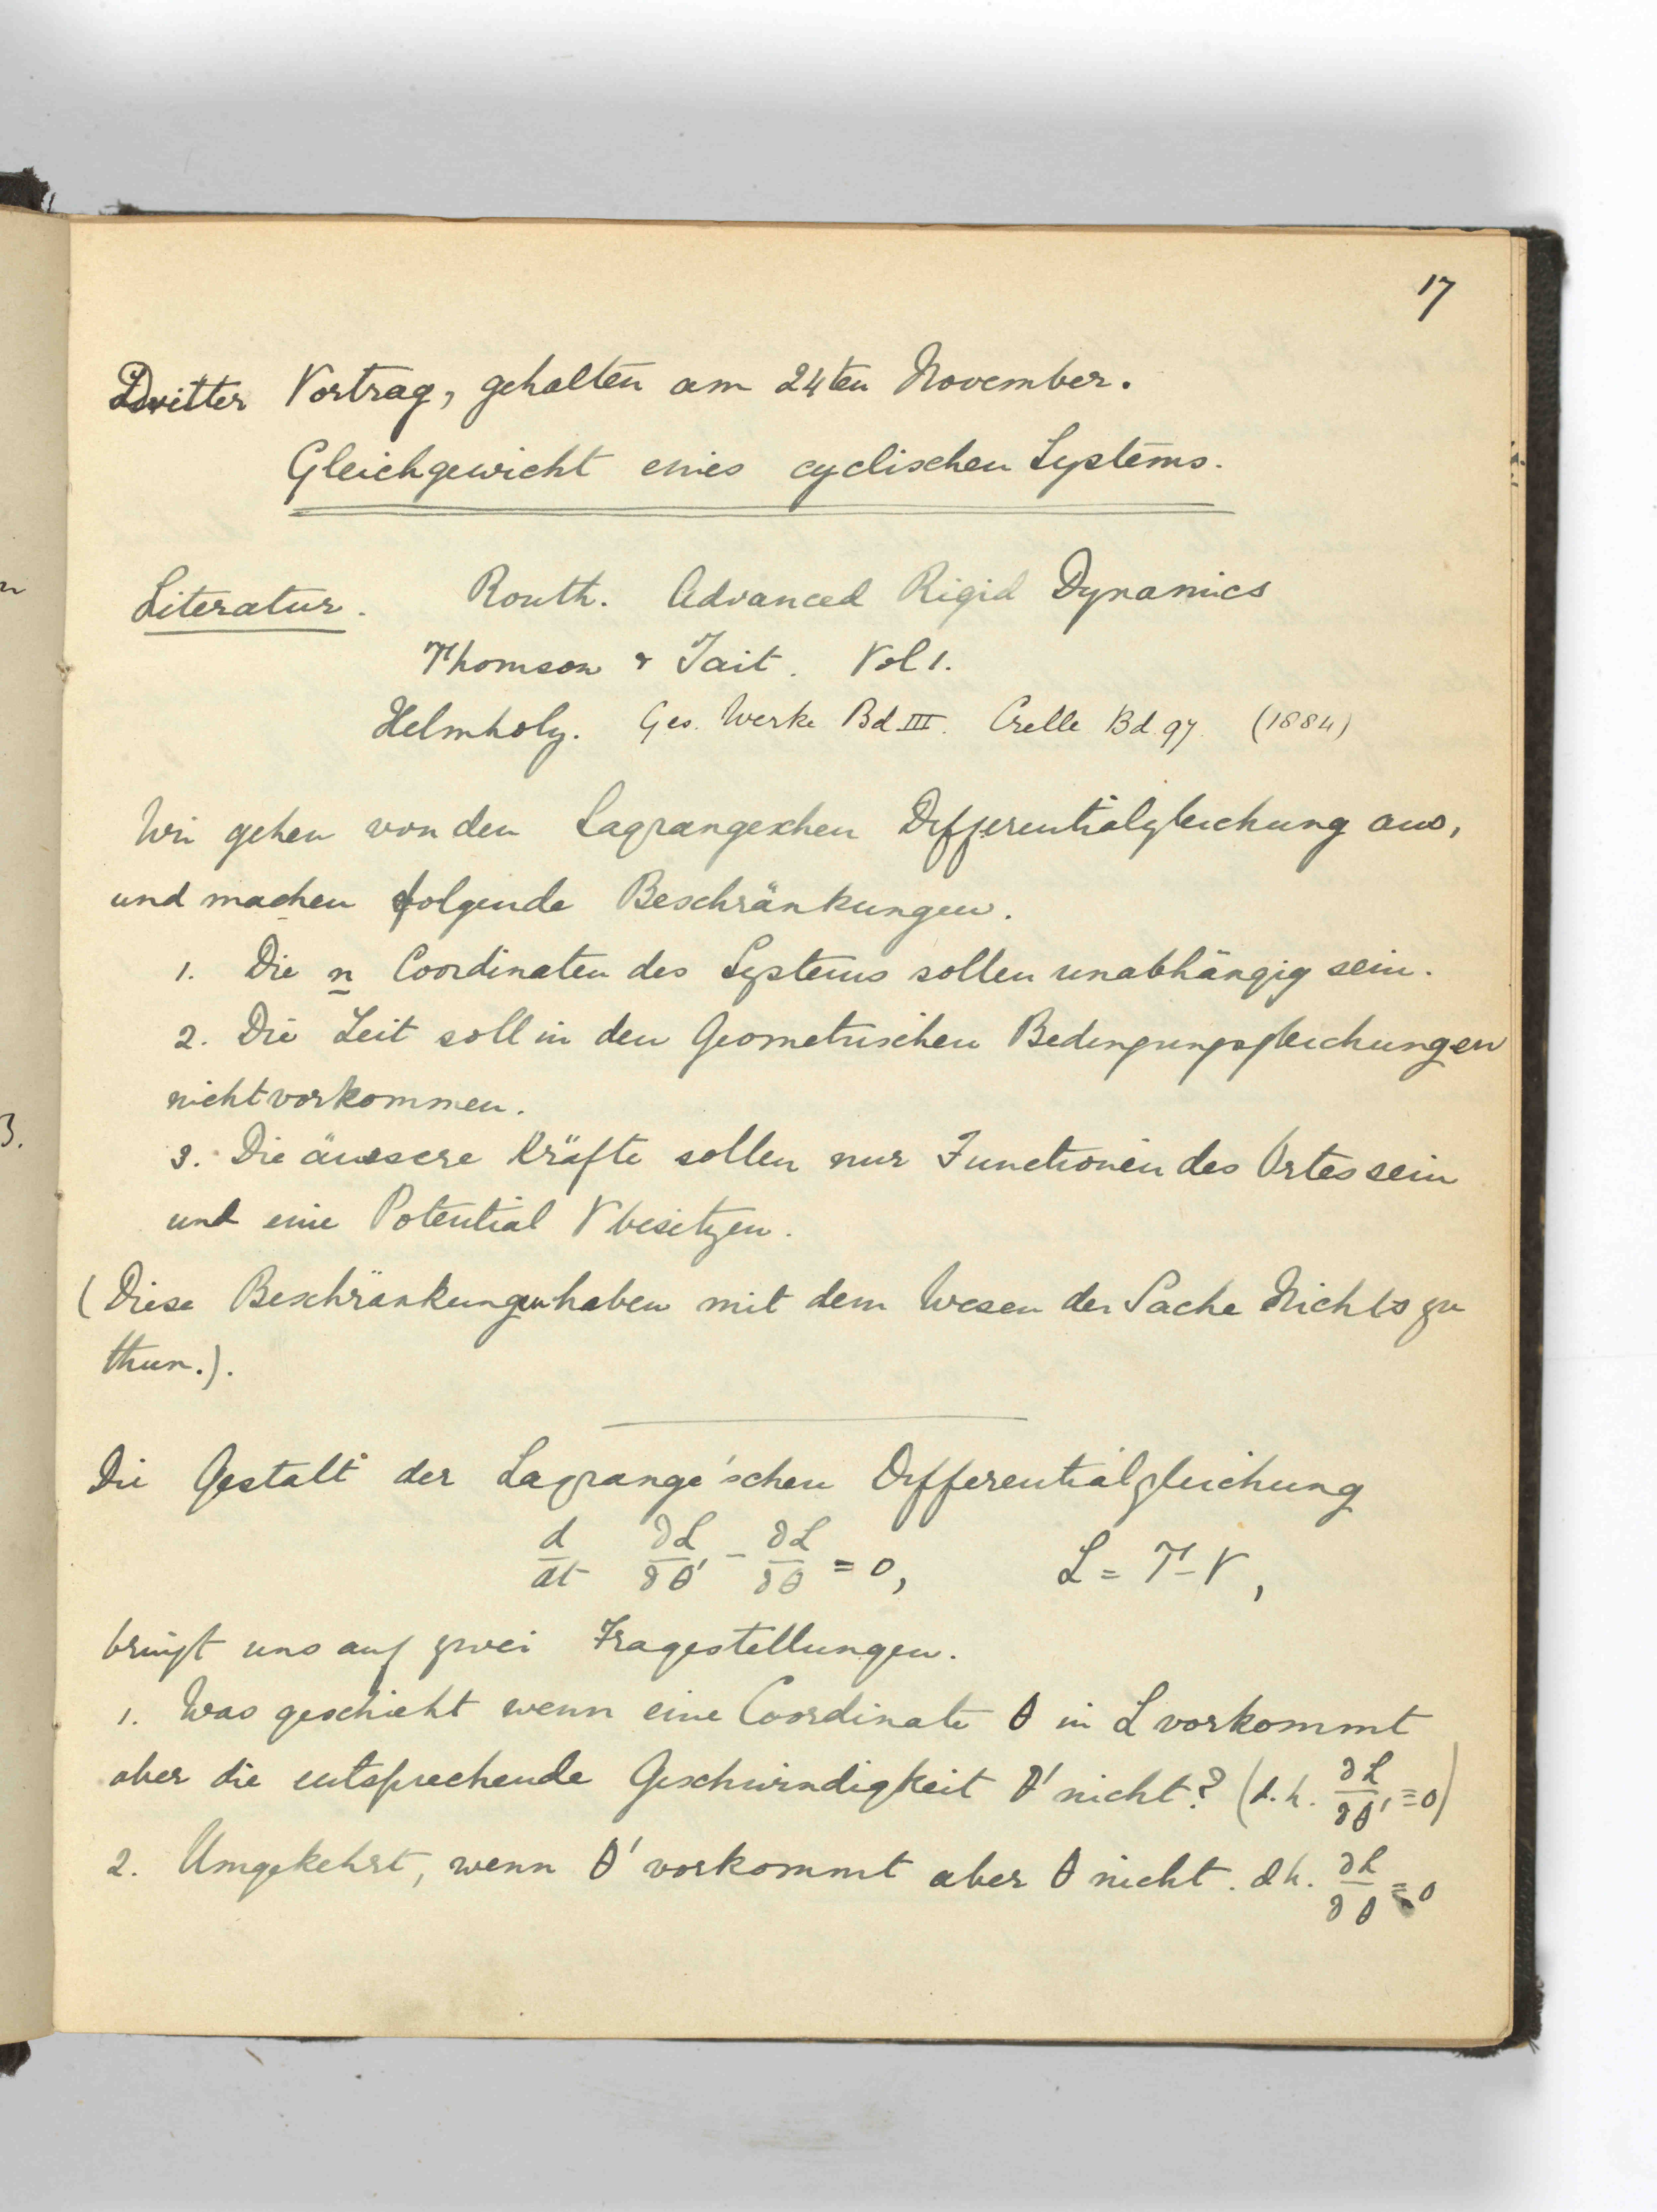 17
Dritter Vortrag, gehalten am 24ten November.
Gleichgewicht eines cyclischen Systems.
Literatur. Routh. Advanced Rigid Dynamics
Thomson & Tait. Vol 1.
Helmholz. Ges. Werke Bd. III. Crelle Bd. 97 (1884)
Wir gehen von den Lagrangeschen Differentialgleichung aus,
und machen folgende Beschränkungen.
1. Die n Coordinaten des Systems sollen unabhängig sein.
2. Die Zeit soll in den Geometrischen Bedingungsgleichungen
nicht vorkommen.
3. Die äussere Kräfte sollen nur Functionen des Ortes sein
und eine Potential V besitzen.
(Diese Beschränkungen haben mit dem Wesen der Sache Nichts zu
thun.).
Die Gestalt der Lagrange'schen Differentialgleichung
d/dt ∂L/∂θ' - ∂L/∂θ = 0, L = T - V,
bringt uns auf zwei Fragestellungen.
1. Was geschieht wenn eine Coordinate θ in L vorkommt
aber die entsprechende Geschwindigkeit θ' nicht? (d.h. ∂L/∂θ' = 0)
2. Umgekehrt, wenn θ' vorkommt aber θ nicht. d h. ∂L/∂θ = 0
3.